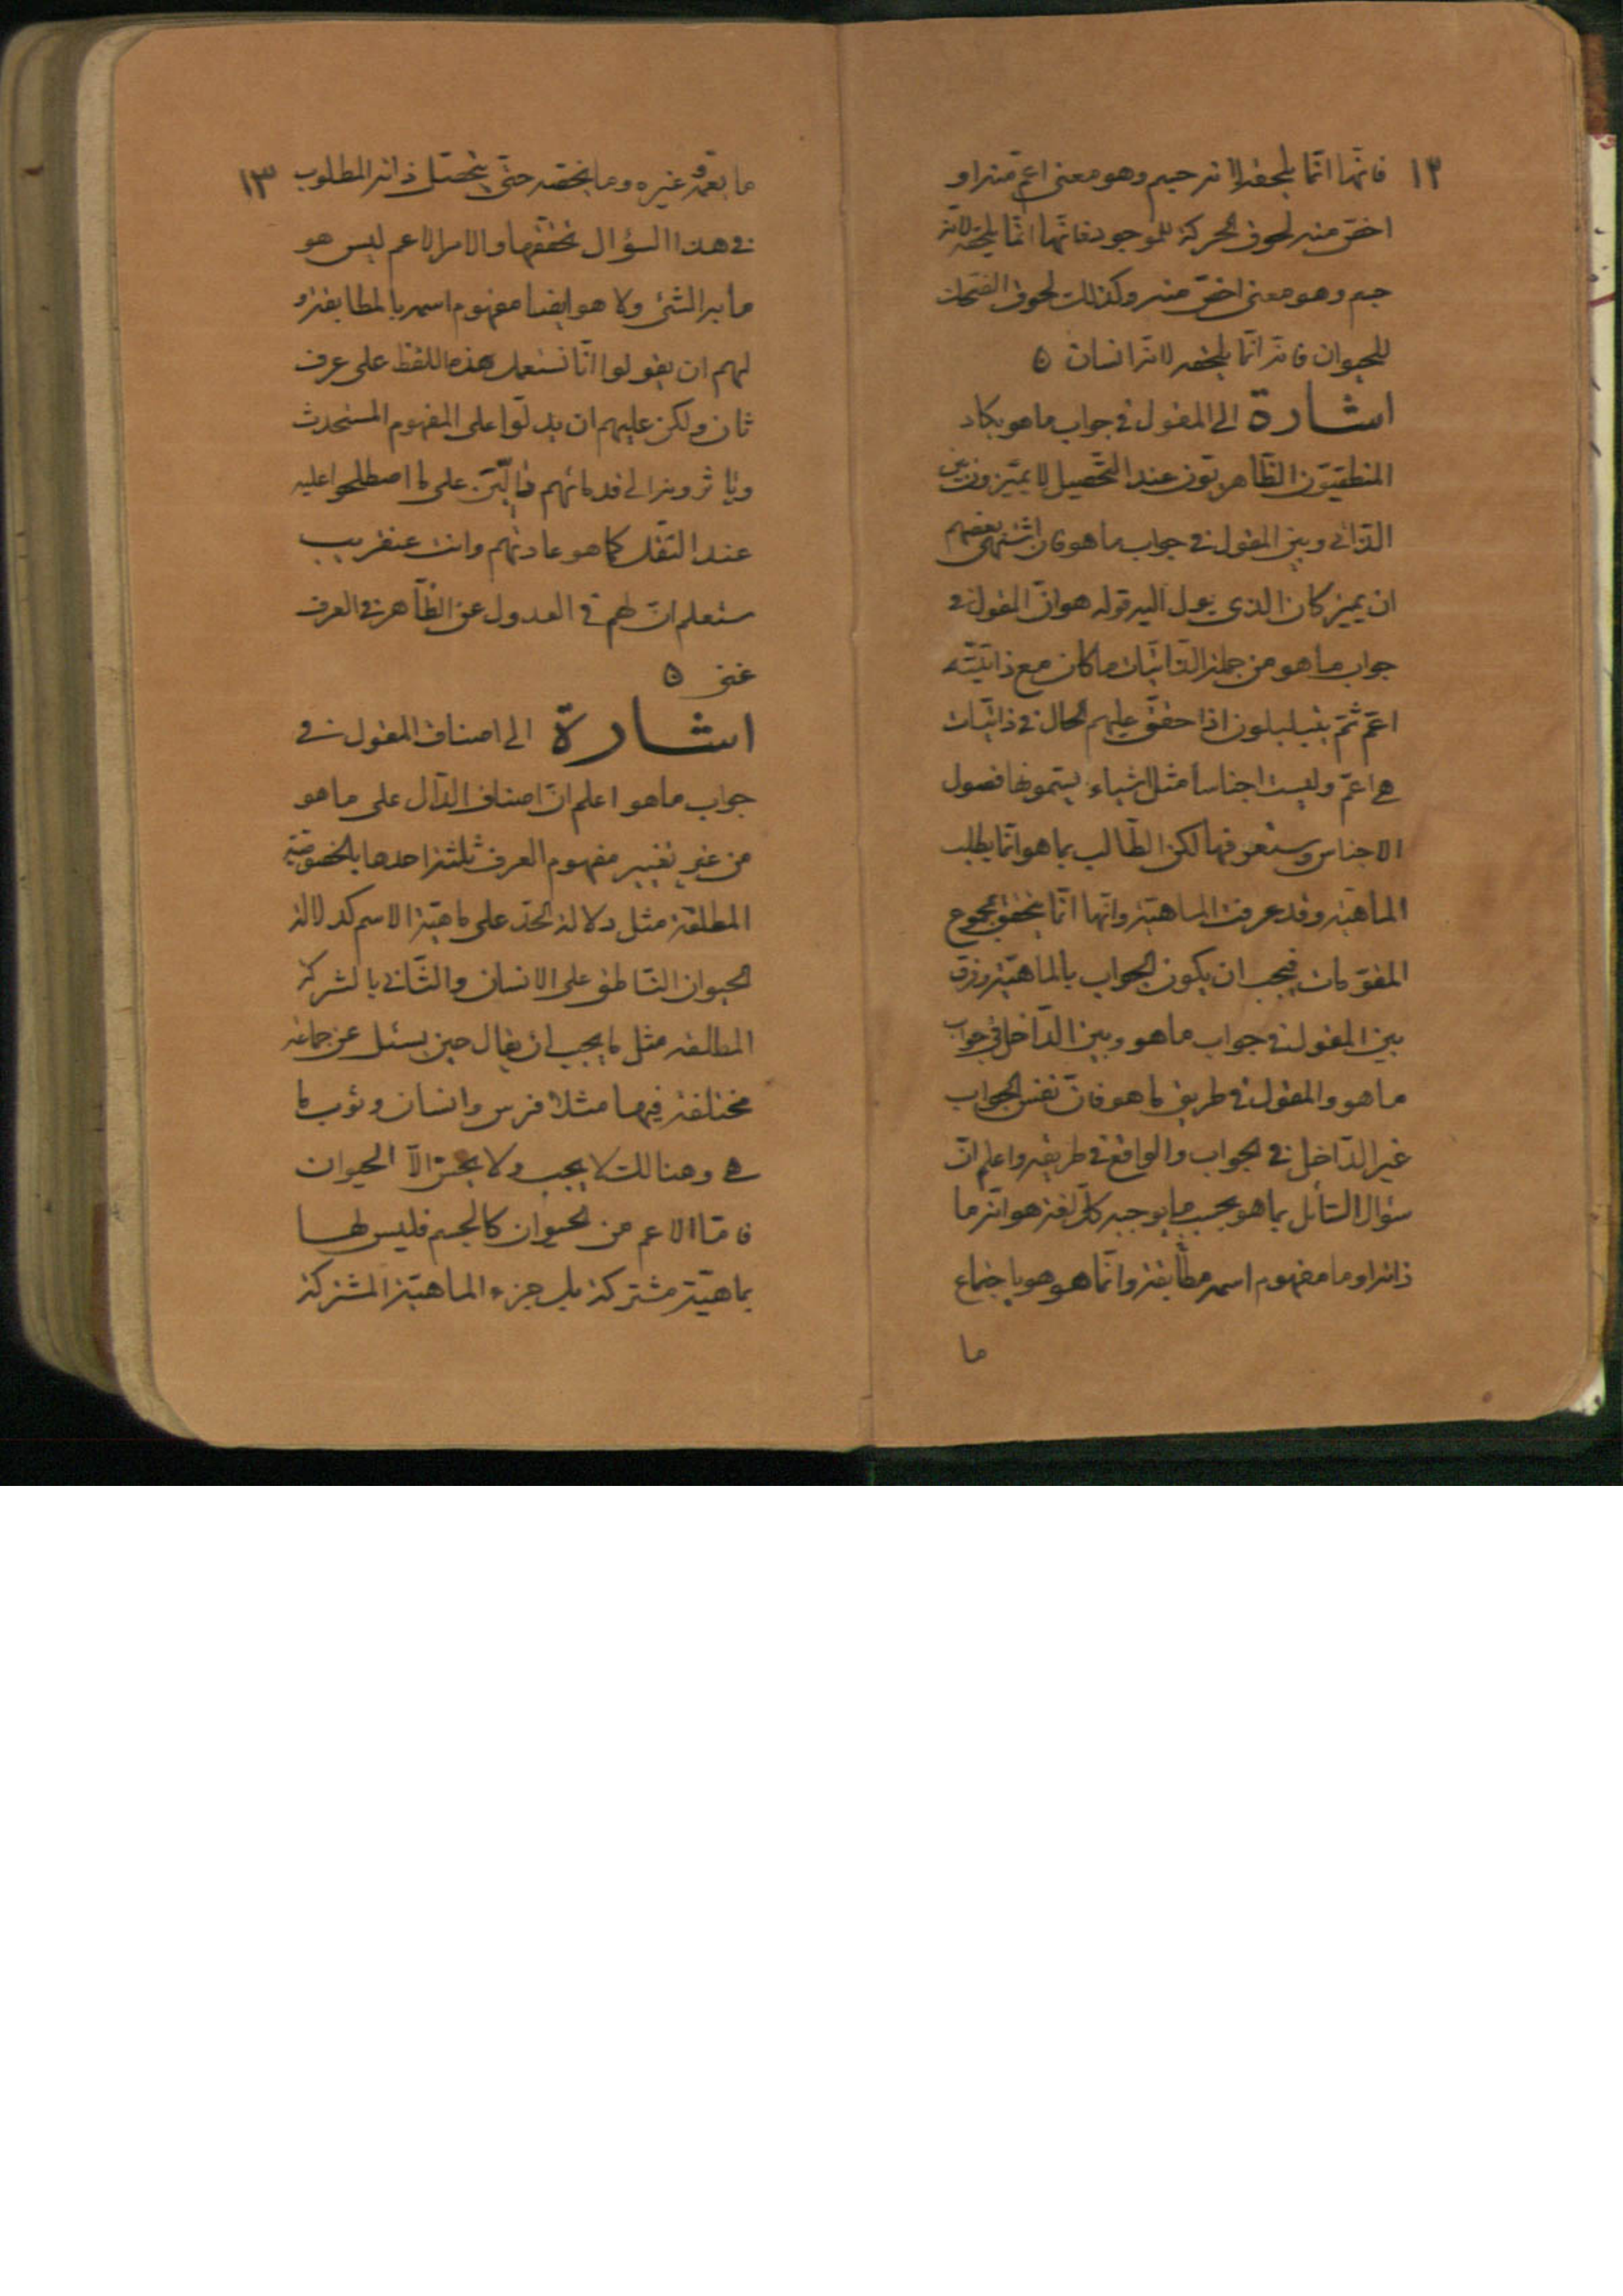 ١٢
فانّها انّما يلحقه لانه جسم وهو معنى اعمّ منه او
اخصّ منه لحوق الحركة للموجود فانّها انّما يلحقه لانّه
جسم وهو معنى اخصّ منه وكذلك لحوق الضحك
للحيوان فانّه انّما يلحقه لانّه انسان ۵
اشارة الى المقول فى جواب ماهو يكاد
المنطقيّون الظّاهريّون عند التّحصيل لا يميّزون بين
الذّاتى وبين المقول فى جواب ماهو فان اشتهى بعضهم
ان يميز كان الذى يول اليه قوله هو انّ المقول فى
جواب ماهو من جملة الذّاتيّات ما كان مع ذاتيّته
اعمّ ثمّ يتبلبلون اذا حقّق عليهم الحال فى ذاتيّات
هى اعمّ وليست اجناساً مثل اشياء يسمّونها فصول
الاجناس وستعرفها لكن الطّالب بما هو انّما يطلب
الماهيّة وقد عرفت الماهيّة وانّها انّما يتحقق بمجموع
المقوّمات فيجب ان يكون الجواب بالماهيّة وفرق
بين المقول فى جواب ماهو وبين الدّاخل فى جواب
ماهو والمقول فى طريق ماهو فانّ نفس الجواب
غير الدّاخل فى الجواب والواقع فى طريقه واعلم انّ
سؤال السّائل بما هو بحسب ما يوجبه كلّ لغة هو انّه ما
ذاته او ما مفهوم اسمه مطابقة وانّما هو هو باجتماع
ما
١٣
ما يعمّه وغيره وما يخصّه حتّى يتحصّل ذاته المطلوب
فى هذا السؤال تحقّقها والامر الاعم ليس هو
ما به الشئ ولا هو ايضا مفهوم اسمه بالمطابقة و
لهم ان يقولوا انّا نستعمل هذه اللفظ على عرف
ثان ولكن عليهم ان يدلّوا على المفهوم المستحدث
وياثروه الى قدمائهم دالّين على ما اصطلحوا عليه
عند النّقل كما هو عادتهم وانت عنقريب
ستعلم انّ لهم فى العدول عن الظّاهر فى العرف
غنى ۵
اشارة الى اصناف المقول فى
جواب ماهو اعلم انّ اصناف الدّال على ماهو
من غير تغيير مفهوم العرف ثلثة احدها بالخصوصيّة
المطلقة مثل دلالة الحدّ على ماهيّة الاسم كدلالة
الحيوان النّاطق على الانسان والثّانى بالشركة
المطلقه مثل ما يجب ان يقال حين يسئل عن جماعة
مختلفة فيها مثلا فرس وانسان وثور ما
هى وهنالك لا يجب ولا يحسن الّا الحيوان
فامّا الاعم من الحيوان كالجسم فليس لها
بماهيّة مشتركة بل جزء الماهيّة المشتركة